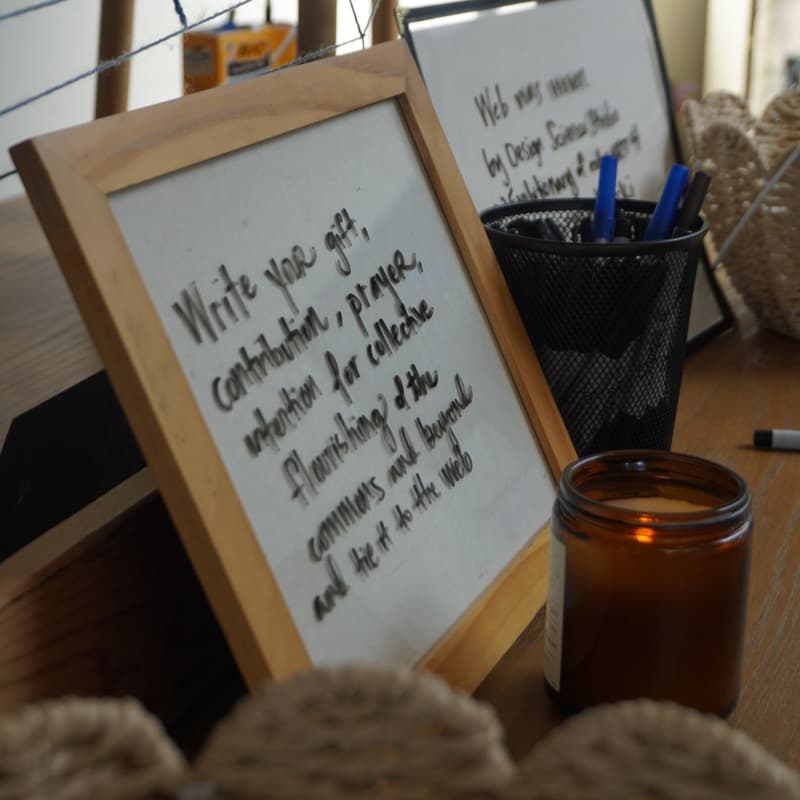 Write your gift,
contribution, prayer,
intention for collective
flourishing of the
commons and beyond
and tie it to the web
Web was
by Design Science Studio
BIC